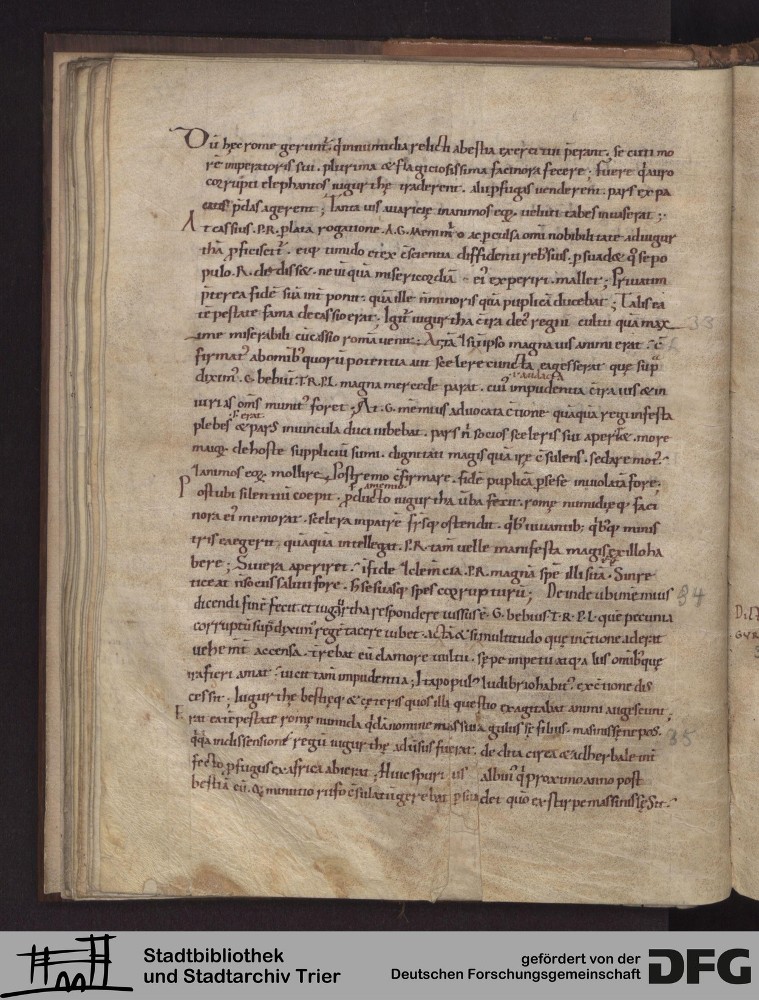 Dū hęc rome gerunt᷑. q̄ innumidia relicti abestia exercitui p̄erant. secuti mo
rē imperatoris sui. plurima & flagiciosissima facinora fecere; fuere q̄ auro
corrupti elephantos iugurthę traderent. alii pfugas uenderent. pars expa
catis p̄das agerent; Tanta uis auaricię inanimos eoꝝ. ueluti tabes inuaserat;
At cassius .P.R. plata rogatione .A.G. Memmio ac pculsa omī nobilitate adiugur
thā pficiscit᷑. eiq; timido et ex c̄scientia diffidenti reb; suis. psuad& q̄ se po
pulo .R. dediss&. ne uī quā misericordiā ei᷒ experiri mallet; Priuatim
p̄terea fidē suā int̄ ponit. quā ille n̄ minoris quā puplicā ducebat; Talis ea
tēpestate fama de cassio erat; Igit᷑ iugurtha c̄tra dec᷒ regiū cultu quā max
ime miserabili cū cassio romā uenit;
firmat᷒ abomīb; quorū potentia aut scelere cuncta ea gesserat que sup̄
diximꝰ. G. bebiū .T.R.PL. magna mercede parat. cuiꝰ impudentia c̄tra ius & in
iurias om̄s munitꝰ foret; At .G. memius aduocata c̄tione quāquā regi infesta
plebes erat & pars inuincula duci iubebat. pars n̄ socios sceleris sui aperir&. more
maioꝝ de hoste suppliciū sumi. dignitati magis quā irę c̄sulens. sedare motꝰ
& animos eoꝝ mollire. Postremo c̄firmare. fidē puplicā p sese inuiolatā fore;
Post ubi silentiū coepit. pducto iugurtha uerba fecit. romę numidięq; faci
nora eiꝰ memorat. scelera inpatrē frīsq; ostendit. q̄b; iuuantib; q̄bq; minis
tris ea egerit. quāquā intellegat .P.R. tam̄ uelle manifesta magis ex illo ha
bere; Si uera aperiret. ī fide & clem̄cia .P.R. magnā spē illi sitā. Sin re
ticeat n̄ sociis saluti fore. s; se suasq; spes corrupturū; Deinde ubi memius
dicendi finē fecit. et iugurtha respondere iussus ē. G. bebius .T.R.P.L. que pecunia
corruptū sup̄ diximꝰ regē tacere iubet. ac tam&si multitudo que inc̄tione aderat
uehem̄t᷑ accensa. t̄rebat eū clamore uultu. sępe impetu atq; aliis omīb; que
ira fieri amat. uicit tam̄ impudentia; Ita populꝰ ludibrio habitꝰ. ex c̄tione dis
cessit; Iugurthe bestięq; & cęteris quos illa questio exagitabat animi augescunt;
Erat ea tēpestate romę numida qdā nomine massiua gulussę filius. masinissę nepos.
q̄ quia indissensione regū iugurthę aduersus fuerat. dedita cirta & adherbale int̄
fecto pfugus ex africa abierat; Huic spurius albinꝰ q̄ proximo anno post
bestiā cū .Q. minutio rufo c̄sulatū gerebat psuadet quo ex stirpe massinissę Sit
33
34
35
Stadtbibliothek
und Stadtarchiv Trier
gefördert von der
Deutschen Forschungsgemeinschaft
DFG